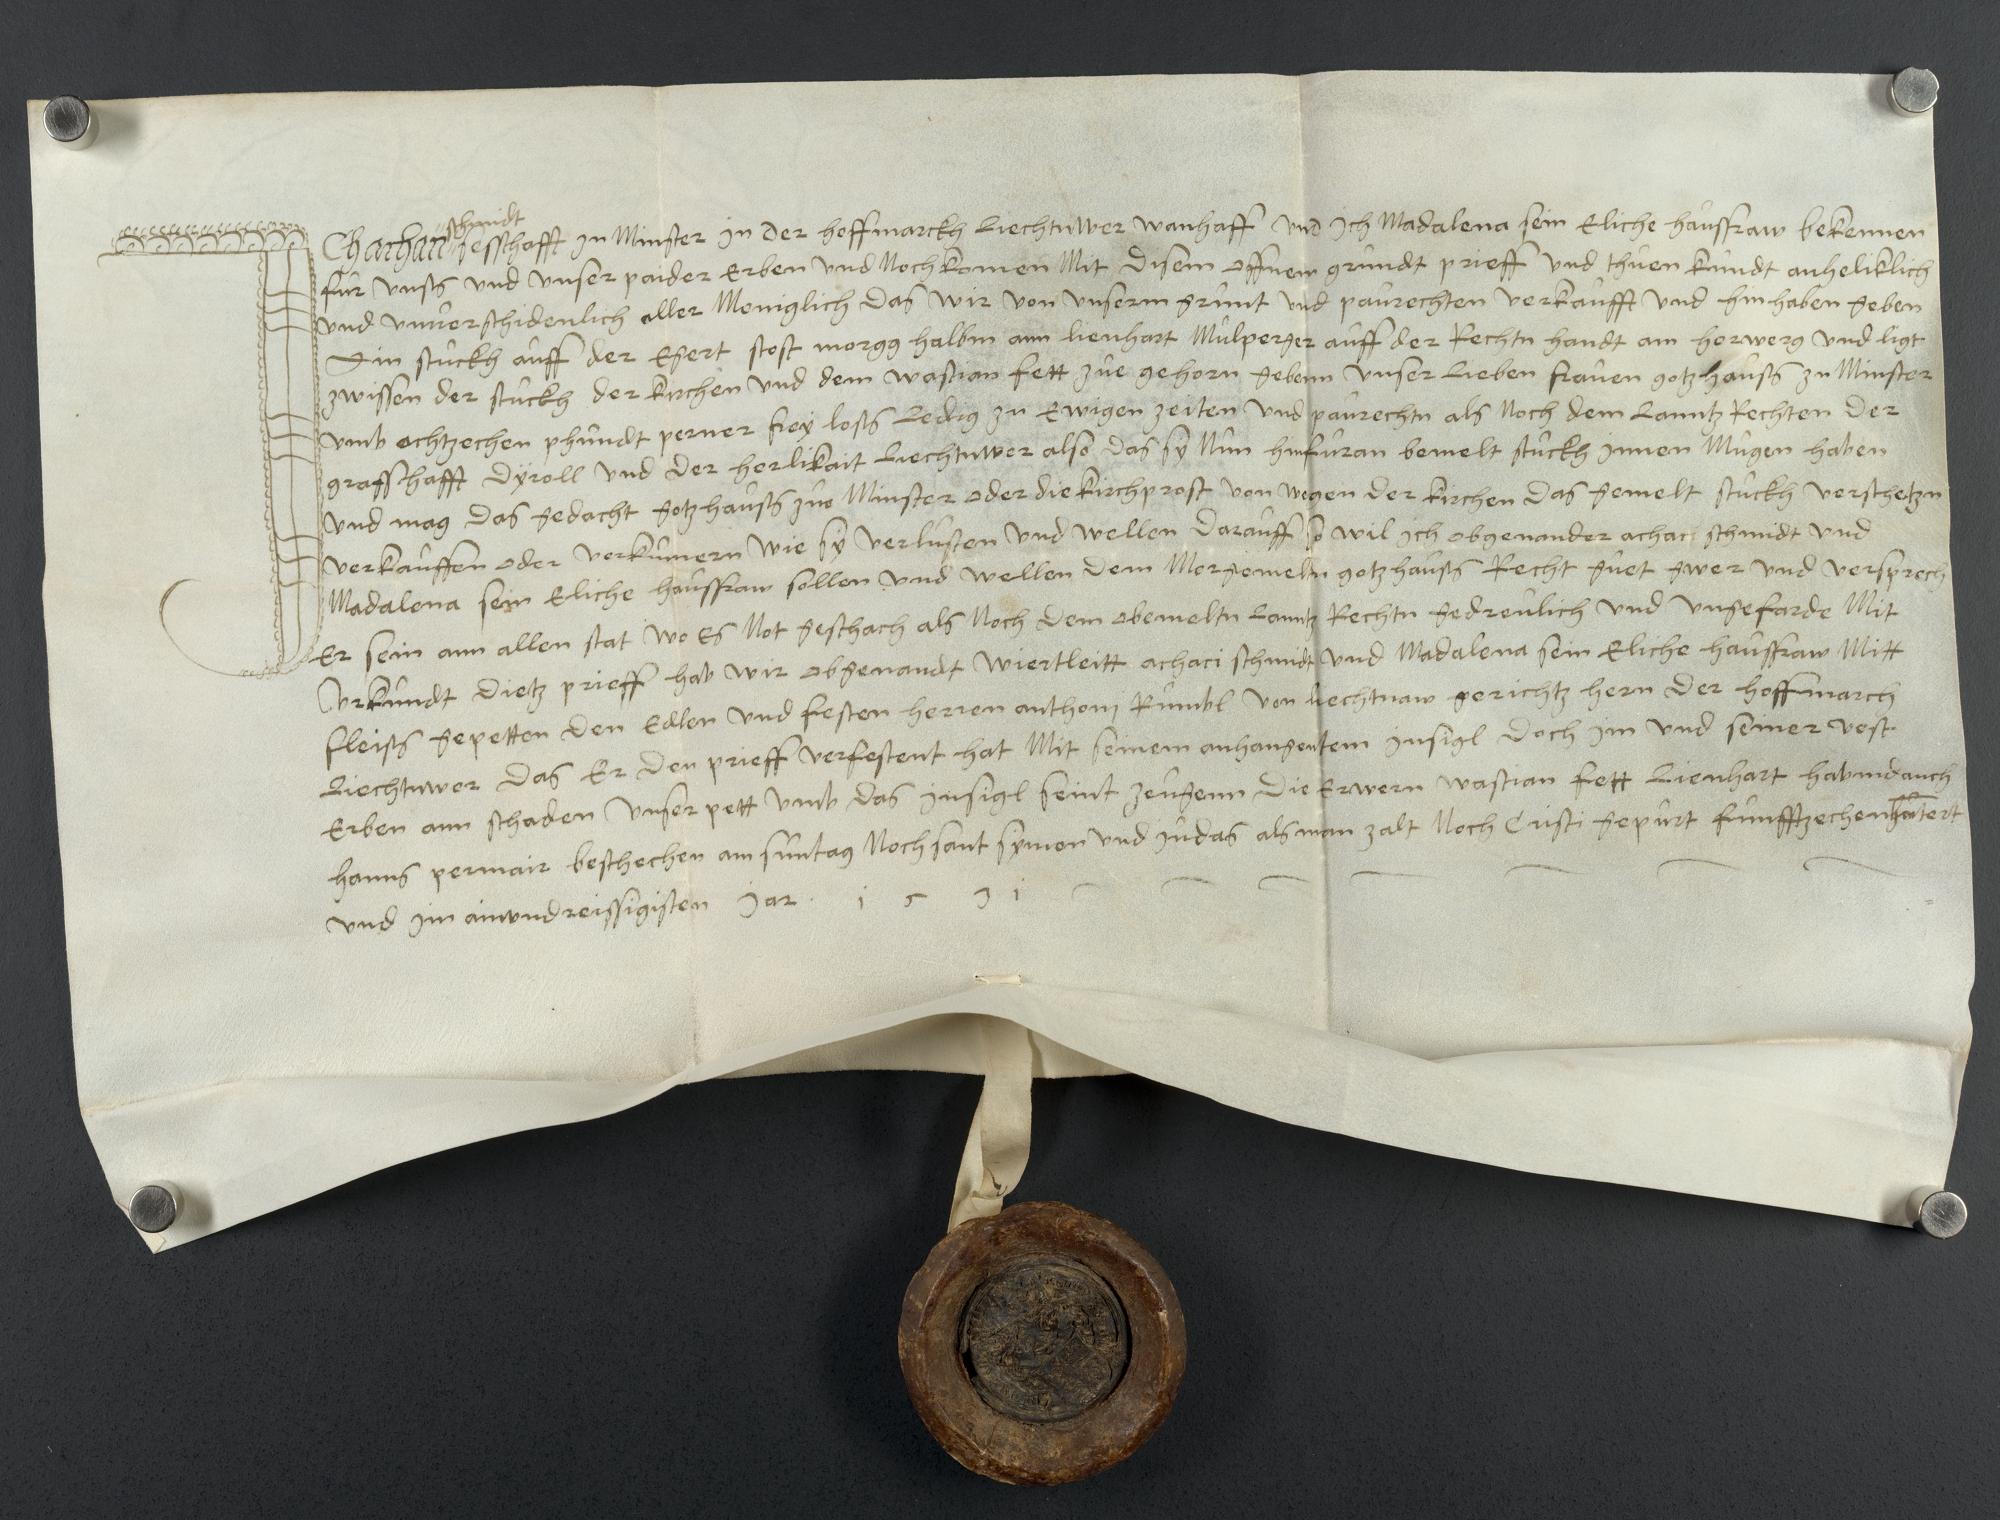 Ich achaci schmidt sesshafft in Minster in der hoffmarckh Liechtnwer wanhafft und ich Madalena sein Eliche haussfraw bekennen
fur unsß und unser paider Erben und Nochkomen Mit disem offnem grundt prieff und thuen kundt
und unverschidenlich aller Meniglich das wir von unserm grunt und paurechten verkaufft und hin haben geben
Ein stuckh auff der Egert stost morgg halbm ann lienhart Mulperger auff der Rechtn handt am herwerg und ligt
zwissen der stuckh der kirchen und dem wastian fett zue gehorn gebenn unser Lieben frauen gotzhausß zu Minster
umb achtzechen phundt perner frey losß Ledig zu Ewigen zeiten und paurechtn als Noch dem Lanntz Rechten der
graffschafft Dyroll und der herlikait Liechtnwer also das sy Nun hinfuran bemelt stuckh innen Mugen haben
und mag das gedacht gotzhausß zue Minster oder die kirchprost von wegen der kirchen das gemelt stuckh verschetzn
verkauffen oder verkumern wie sy verlusten und wellen darauff so wil ich obgenander achaci schmidt und
Madalena sein Eliche haussfraw sollen und wellen dem gotzhausß Recht guet gwer und versprech
Er sein ann allen stat wo Es Not geschach als Noch dem obemeltn Lanntz Rechtn gedreulich und ungefarde Mit
Urkundt dietz prieff hab wir obgenandt wiertleitt achaci schmidt und Madalena sein Eliche haussfraw Mitt
fleisß gepetten den Edlen und festen herren anthoni Rumbl von Liechtnaw gerichtz hern der hoffmarch
Liechtnwer das Er den prieff verfestent hat Mit seinem anhangentem insigl doch im und seiner vest
Erben ann schaden unser pett umb das insigl seint zeugenn die Erwern wastian fett Lienhart
hanns permair beschechen am suntag Noch sant symon und judas als man zalt Noch Cristi gepurt funfftzechenhuntert
und im ainundreissigisten jar . 1 5 3 1